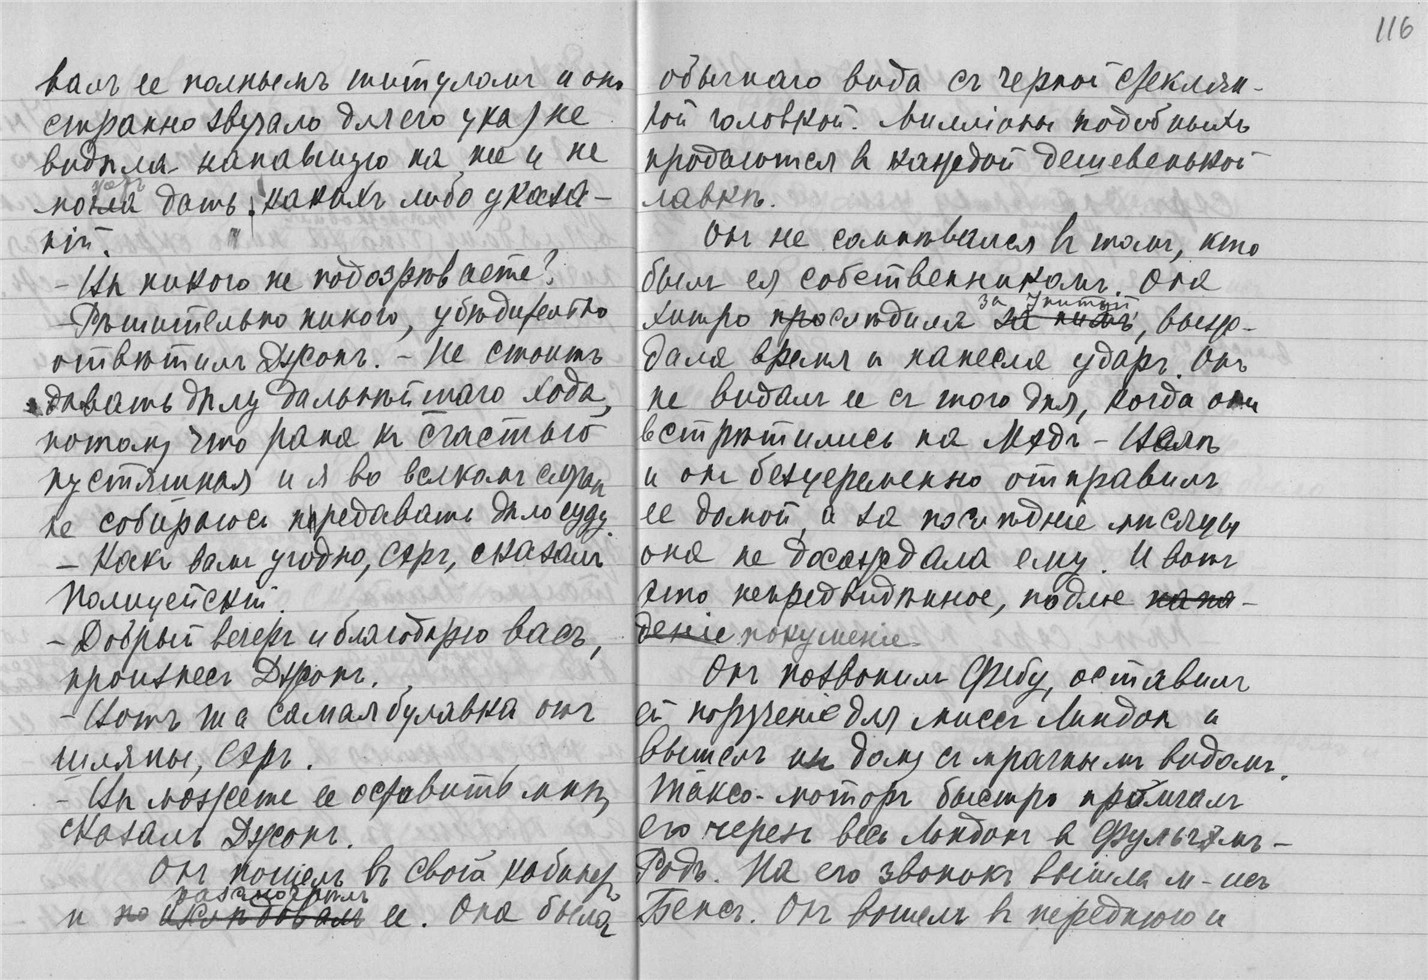 валъ ее полнымъ титуломъ и оно
странно звучало для его уха) не
видѣла напавшую на нее и не
могла дать какихъ либо указа-
ній.
- Вы никого не подозрѣваете?
- Рѣшительно никого, убѣдительно
отвѣтилъ Джонъ. - Не стоитъ
давать дѣлу дальнѣйшаго хода,
потому что рана къ счастью
пустяшная и я во всякомъ случаѣ
не собираюсь передавать дѣло суду.
- Какъ вамъ угодно, сэръ, сказалъ
полицейскій.
- Добрый вечеръ и благодарю васъ,
произнесъ Джонъ.
- Вотъ та самая булавка отъ
шляпы, сэръ.
- Вы можете ее оставить мнѣ,
сказалъ Джонъ.
Онъ пошелъ въ свой кабинетъ
разсмотрѣлъ
и ее. Она была
116
обычнаго вида съ черной стеклян-
ной головкой. Милліоны подобныхъ
продаются въ каждой дешевенькой
лавкѣ.
Онъ не сомнѣвался въ томъ, кто
былъ ея собственникомъ. Она
за Юнитой
хитро прослѣдила за нимъ, выж-
дала время и нанесла ударъ. Онъ
не видалъ ее съ того дня, когда они
встрѣтились на Мэдъ-
и онъ безцеремонно отправилъ
ее домой, а за послѣдніе мѣсяцы
она не досаждала ему. И вотъ
это непредвидѣнное, подлое напа-
деніе покушеніе
Онъ позвонилъ Фебу, оставилъ
ей порученіе для миссъ Линдон и
вышелъ изъ дому съ мрачнымъ видомъ.
Таксо-моторъ быстро промчалъ
его черезъ весь Лондонъ въ Фульгэмъ-
Родъ. На его звонокъ вышла м-исъ
Бенсъ. Онъ вошелъ въ переднюю и